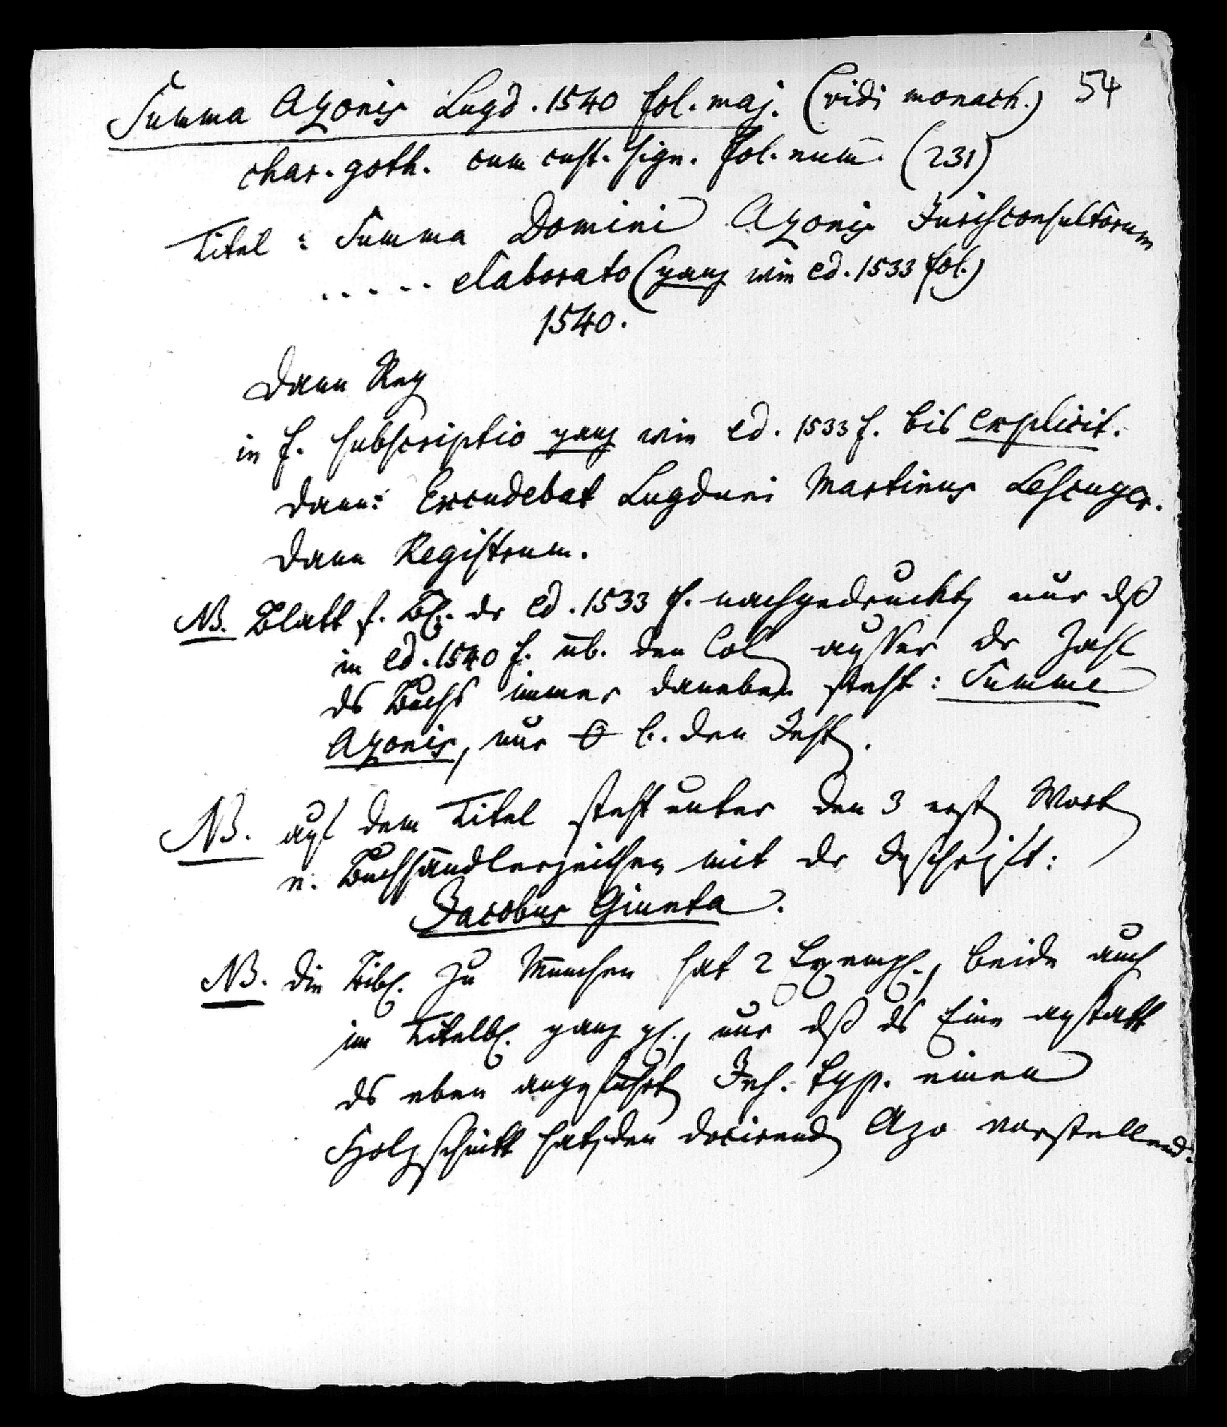 54
Summa Azonis Lugd. 1540 fol. maj. (vidi monach.)
char. goth. cum cust. sign. fol. num. (231)
Titel : Summa Domini Azonis Jurisconsultorum
..... elaborato (ganz wie ed. 1533 fol.)
1540.
Dann Reg
in f. subscriptio ganz wie ed. 1533 f. bis explicit.
dann: Excudebat Lugduni Martinus Lescuyer.
Dann Registrum.
NB. Blatt f. Bl. der ed. 1533 f. nachgedruckt, nur dß
in ed. 1540 f. üb. den Col ausser der Zahl
ds Buchs immer daneben steht: Summe
Azonis, nur b. den Inst.
NB. auf dem Titel steht unter den 3 erst Wort
e. Buchhändlerzeichen mit der Inschrift:
Jacobus Giunta.
NB. die Bibl. zu München hat 2 Exempl., beide auch
im Titelbl. ganz gl., nur dß ds Eine anstatt
ds eben angeführt Insi. Typ. einen
Holzschnitt hat, den docirend Azo vorstellend.